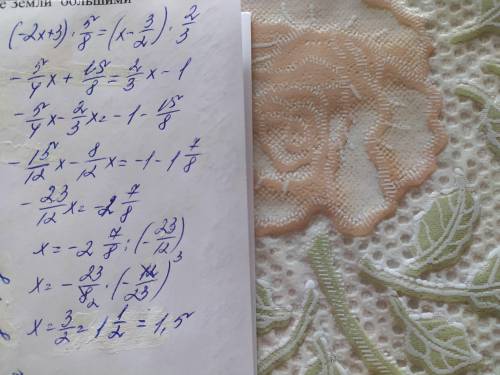 е земли большими
(-2x+3) · 5/8 = (x - 3/2) · 2/3
- 5/4 x + 15/8 = 2/3 x - 1
- 5/4 x - 2/3 x = -1 - 15/8
- 15/12 x - 8/12 x = -1 - 1 7/8
- 23/12 x = -2 7/8
x = -2 7/8 : (- 23/12)
x = - 23/8 2 · (- 12/23) 3
x = 3/2 = 1 1/2 = 1,5